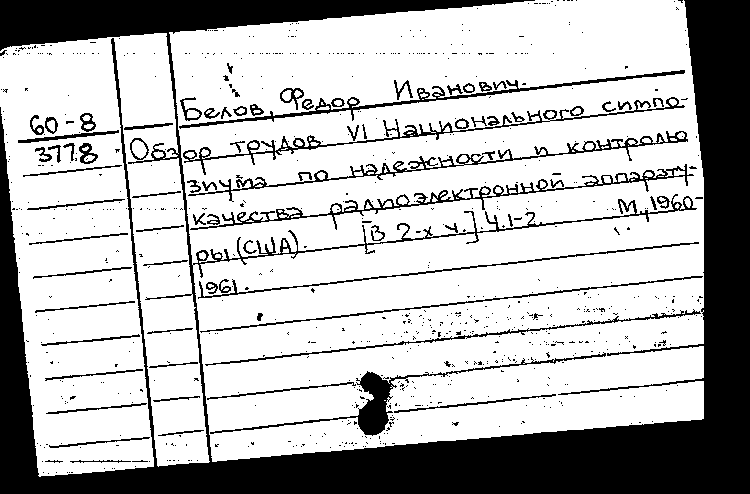 Белов, Федор Иванович.
60-8
3778
Обзор трудов VI Национального симпо-
зиума по надежности и контролю
качества радиоэлектронной аппарату-
ры (США). [В 2-х ч.] Ч.1-2. М., 1960-
1961.